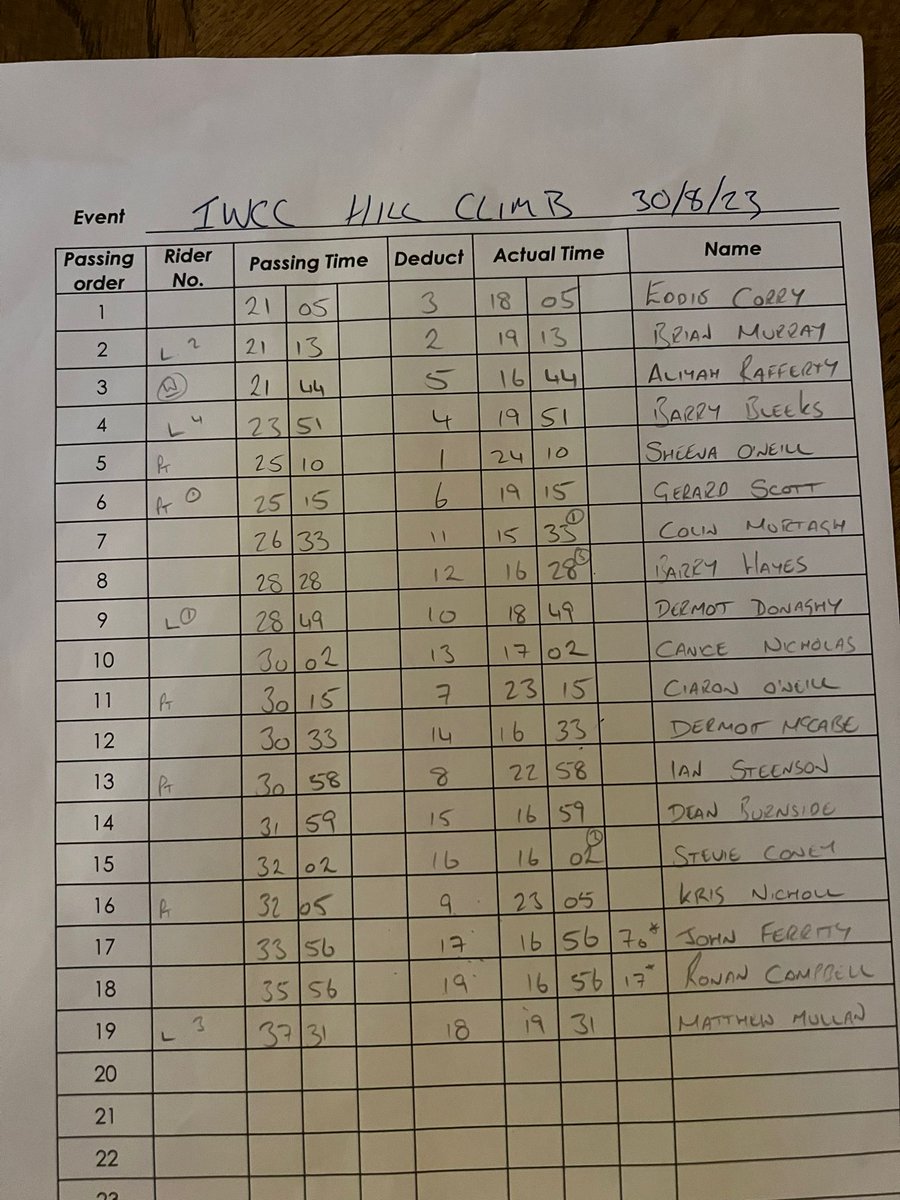 Event IWCC HILL CLIMB 30/8/23
Passing order Rider No. Passing Time Deduct Actual Time Name
1 21 05 3 18 05 EDDIE CORRY
2 L 2 21 13 2 19 13 BRIAN MURRAY
3 W 21 44 5 16 44 ALIYAH RAFFERTY
4 L 4 23 51 4 19 51 BARRY BLEEKS
5 PT 25 10 1 24 10 SHEENA O'NEILL
6 PT 1 25 15 6 19 15 GERARD SCOTT
7 26 33 11 15 33 1 COLIN MURTAGH
8 28 28 12 16 28 3 BARRY HAYES
9 L 1 28 49 10 18 49 DERMOT DONAGHY
10 30 02 13 17 02 CANICE NICHOLAS
11 PT 30 15 7 23 15 CIARON O'NEILL
12 30 33 14 16 33 DERMOT MCCABE
13 PT 30 58 8 22 58 IAN STEENSON
14 31 59 15 16 59 DEAN BURNSIDE
15 32 02 16 16 02 2 STEVIE CONEY
16 32 05 9 23 05 KRIS NICHOLL
17 33 56 17 16 56 76* JOHN FERRITY
18 35 56 19 16 56 17* RONAN CAMPBELL
19 L 3 37 31 18 19 31 MATTHEW MULLAN
20
21
22
23